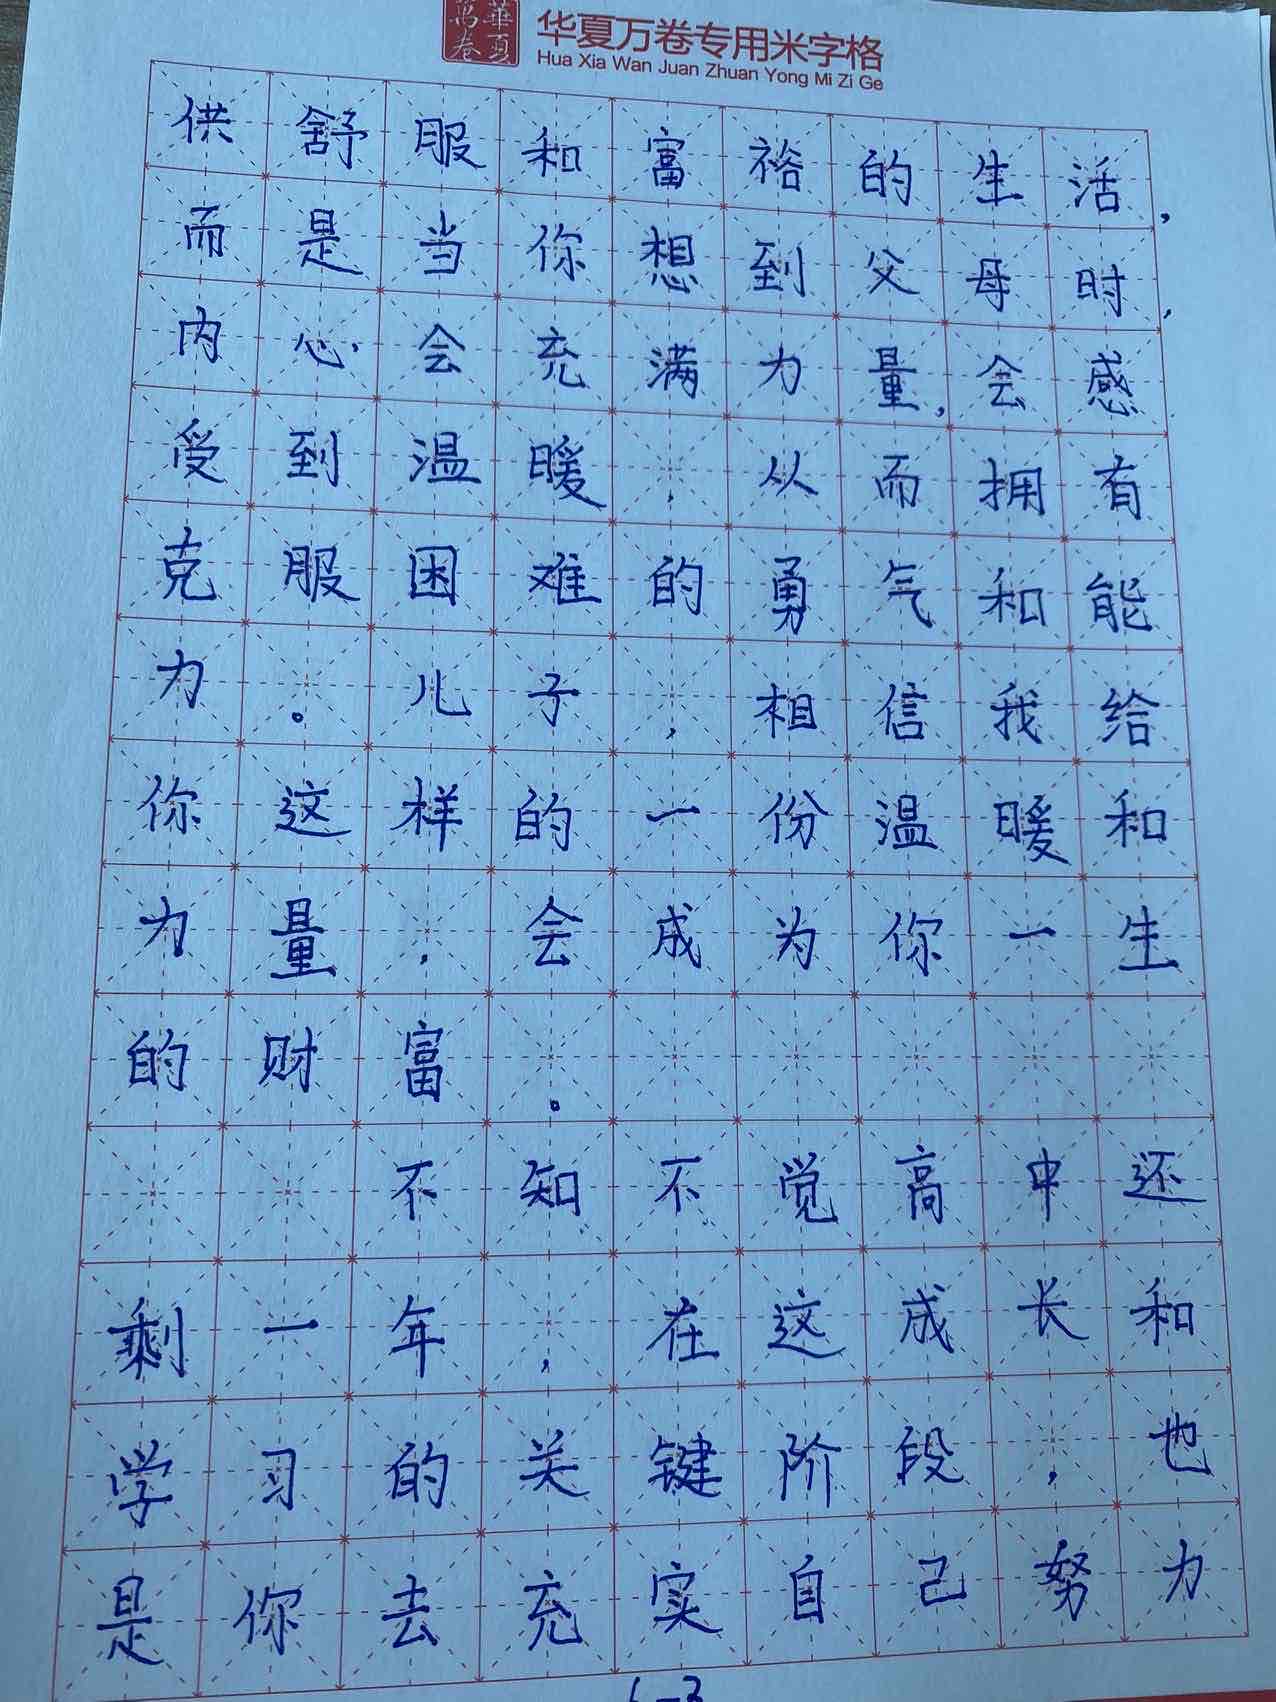 華夏萬卷
华夏万卷专用米字格
Hua Xia Wan Juan Zhuan Yong Mi Zi Ge
供舒服和富裕的生活，
而是当你想到父母时，
内心会充满力量，会感
受到温暖，从而拥有
克服困难的勇气和能
力。儿子，相信我给
你这样的一份温暖和
力量，会成为你一生
的财富。
不知不觉高中还
剩一年，在这成长和
学习的关键阶段，也
是你去充实自己努力
1-3